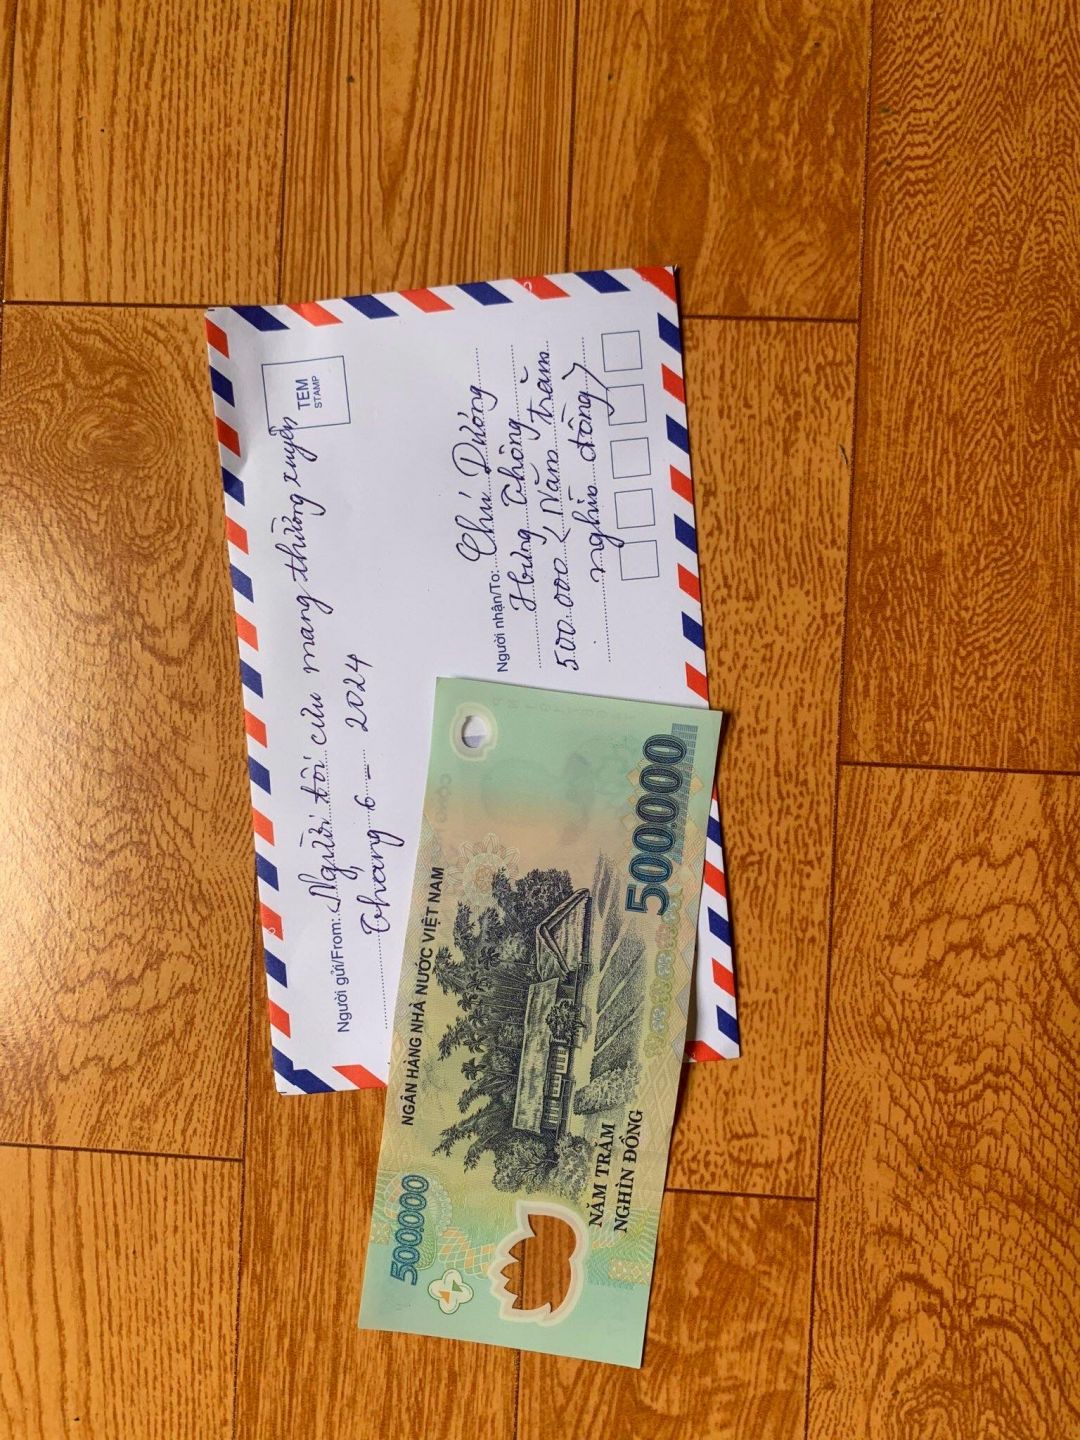 Người gửi/From: Người tôi cưu mang thường xuyên
Thang 6 - 2024
TEM
STAMP
Người nhận/To: Chú Dương
Hưng Thông
500.000 < Năm trăm
nghìn đồng >
NGÂN HÀNG NHÀ NƯỚC VIỆT NAM
500000
500000
NĂM TRĂM
NGHÌN ĐỒNG